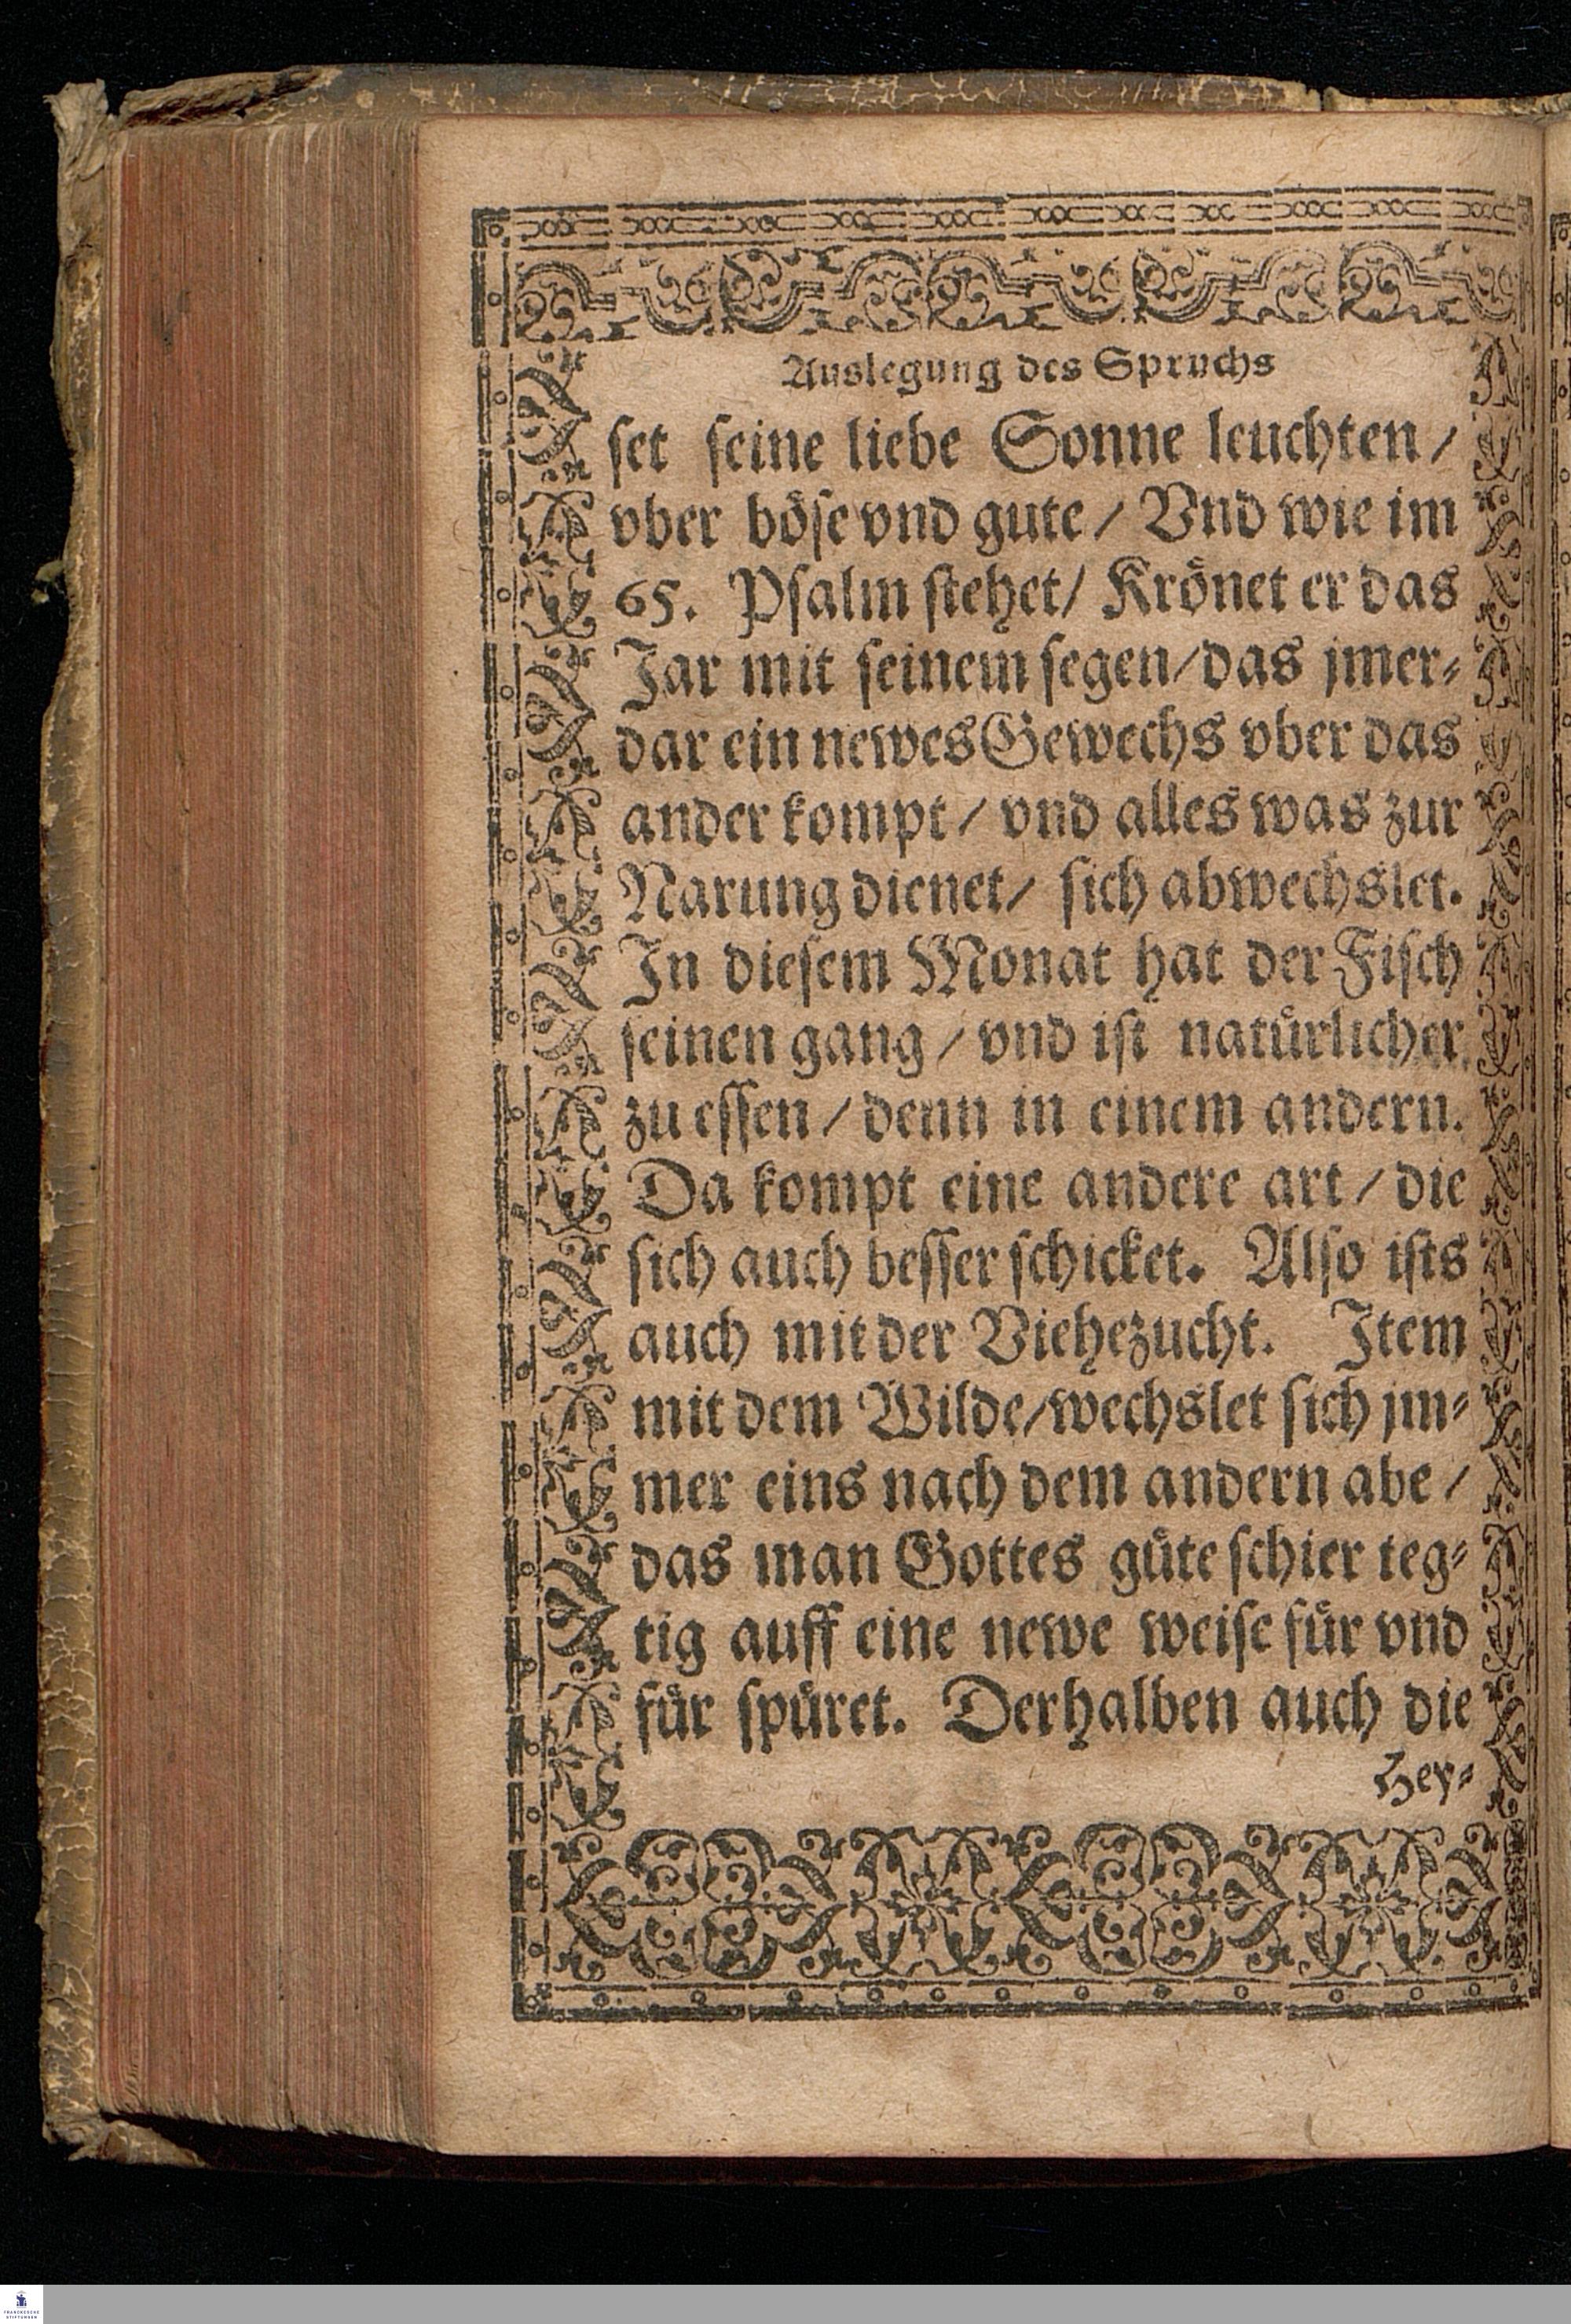 Auslegung des Spruchs
set seine liebe Sonne leuchten /
vber böse vnd gute / Vnd wie im
65. Psalm stehet / Krönet er das
Jar mit seinem segen / das jmer-
dar ein newes Gewechs vber das
ander kompt / vnd alles was zur
Narung dienet / sich abwechslet.
In diesem Monat hat der Fisch
seinen gang / vnd ist natürlicher
zu essen / denn in einem andern.
Da kompt eine andere art / die
sich auch besser schicket. Also ists
auch mit der Viehezucht. Item
mit dem Wilde / wechslet sich jm-
mer eins nach dem andern abe /
das man Gottes güte schier teg-
tig auff eine newe weise für vnd
für spüret. Derhalben auch die
Hey-
FRANCKESCHE
STIFTUNGEN